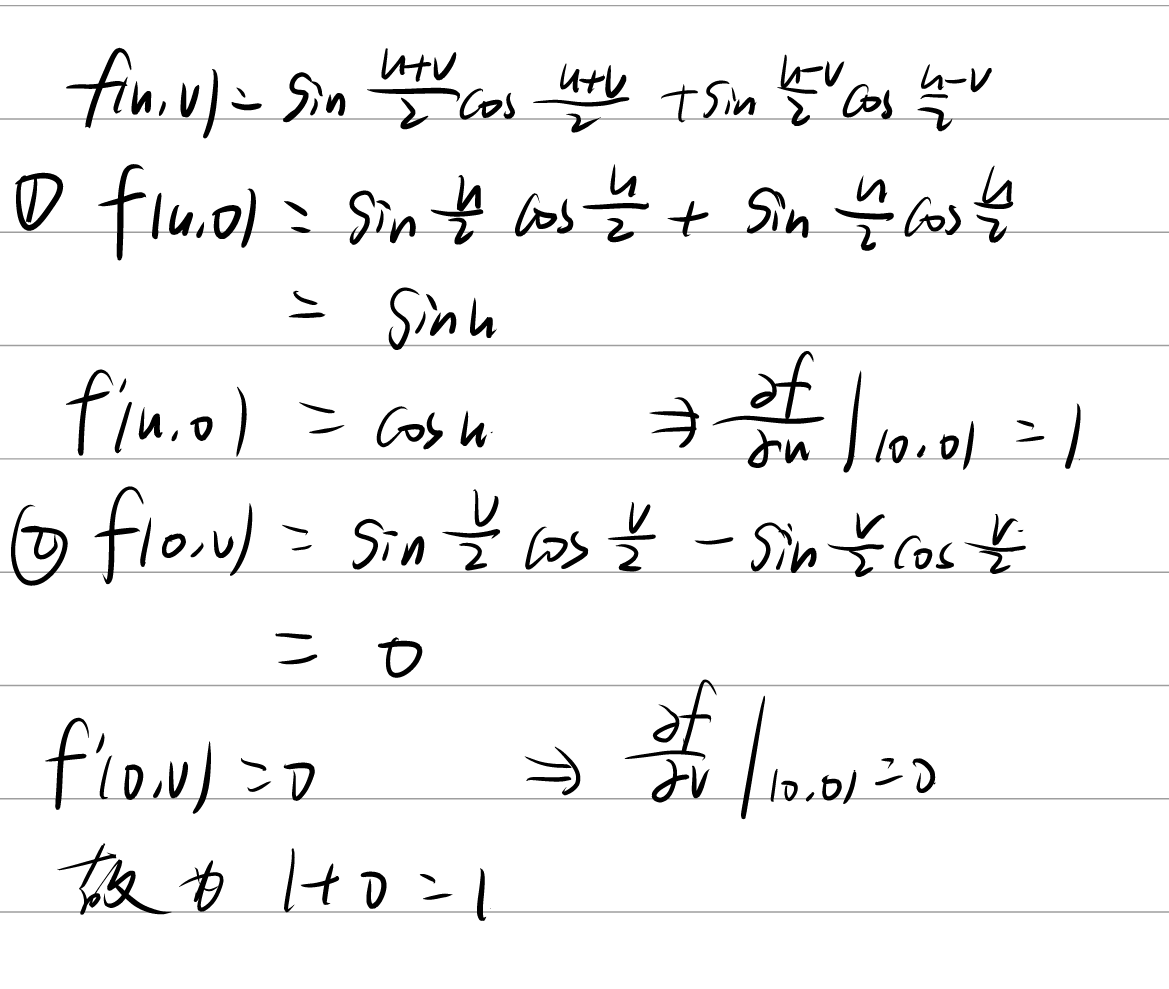 f(u,v) = sin \frac{u+v}{2} cos \frac{u+v}{2} + sin \frac{u-v}{2} cos \frac{u-v}{2}
① f(u,0) = sin \frac{u}{2} cos \frac{u}{2} + sin \frac{u}{2} cos \frac{u}{2}
= sin u
f'(u,0) = cos u ⇒ \frac{∂f}{∂u} |_{(0,0)} = 1
② f(0,v) = sin \frac{v}{2} cos \frac{v}{2} - sin \frac{v}{2} cos \frac{v}{2}
= 0
f'(0,v) = 0 ⇒ \frac{∂f}{∂v} |_{(0,0)} = 0
故为 1+0=1